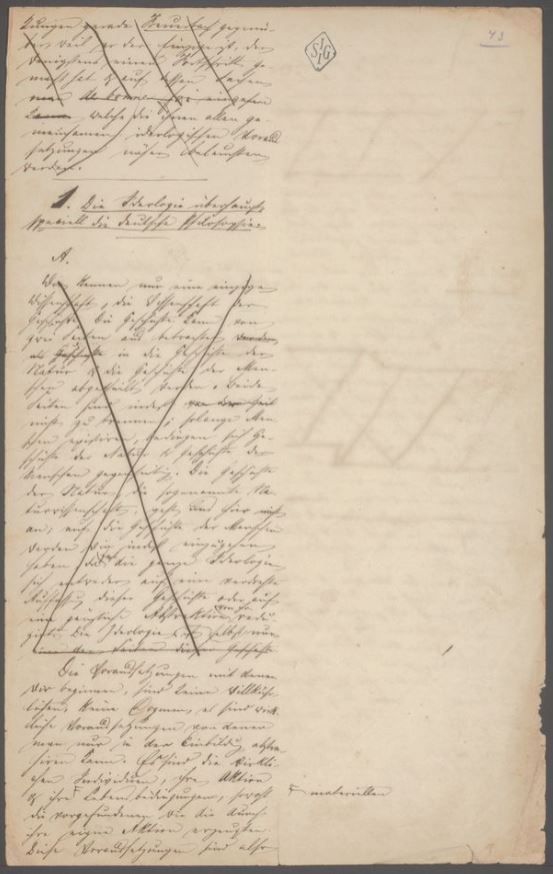 43
SIG
kungen gerade Feuerbach gegenü-
ber, weil er der Einzige ist, der
wenigstens einen Fortschritt ge-
macht hat & auf dessen Sachen
man de bonne foi eingehen
kann; welche die ihnen allen ge-
meinsamen ideologischen Voraus-
setzungen näher beleuchten
werden.
1. Die Ideologie überhaupt,
speciell die deutsche Philosophie.
A.
Wir kennen nur eine einzige
Wissenschaft, die Wissenschaft der
Geschichte. Die Geschichte kann von
zwei Seiten aus betrachtet
in die Geschichte der
Natur & die Geschichte der Men-
schen abgetheilt werden. Beide
Seiten sind indeß von der Zeit
nicht zu trennen; solange Men-
schen existiren, bedingen sich Ge-
schichte der Natur & Geschichte der
Menschen gegenseitig. Die Geschichte
der Natur, die sogenannte Na-
turwissenschaft, geht uns hier nicht
an; auf die Geschichte der Menschen
werden wir indeß einzugehen
haben, da fast die ganze Ideologie
sich entweder auf eine verdrehte
Auffassung dieser Geschichte oder auf
eine gänzliche Abstraktion von ihr redu-
zirt. Die Ideologie ist selbst nur
eine der Seiten dieser Geschichte.
Die Voraussetzungen mit denen
wir beginnen, sind keine willkühr-
lichen, keine Dogmen, es sind wirk-
liche Voraussetzungen von denen
man nur in der Einbildung abstra-
hiren kann. Es sind die wirkli-
chen Individuen, ihre Aktion
& ihre Lebensbedingungen, sowohl
die vorgefundenen wie die durch
ihre eigne Aktion erzeugten.
Diese Voraussetzungen sind also
materiellen